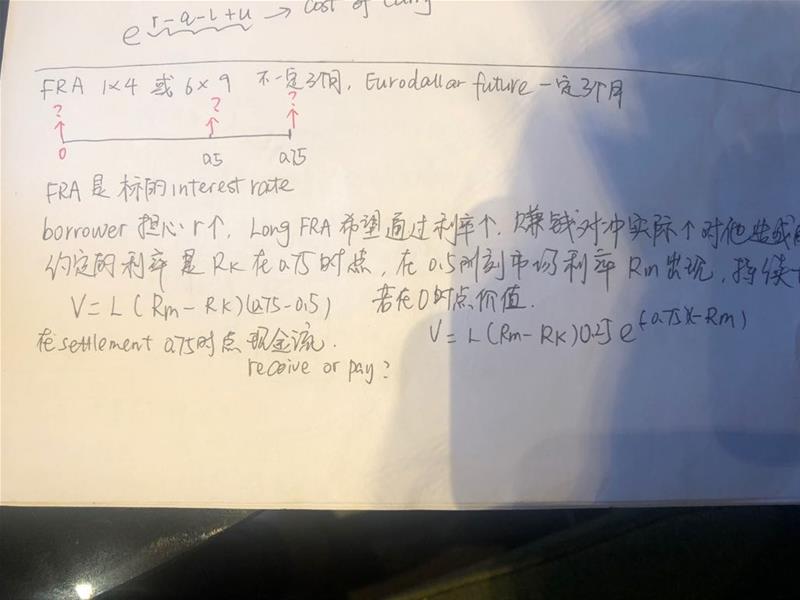 e^{r-q-l+u} → cost of
FRA 1×4 或 6×9 不一定3个月, Eurodallar future 一定3个月
? ? ?
0 0.5 0.75
FRA 是标的interest rate
borrower 担心 r↑, Long FRA 希望通过利率↑. 赚钱对冲实际↑对他造成
约定的利率是 RK 在 0.75 时点, 在 0.5 时刻市场利率 Rm 出现, 持续
V = L (Rm - RK)(0.75-0.5) 若在0时点价值.
在settlement 0.75时点 现金流. V = L (Rm - RK) 0.25 e^{(-0.75)(-Rm)}
receive or pay?